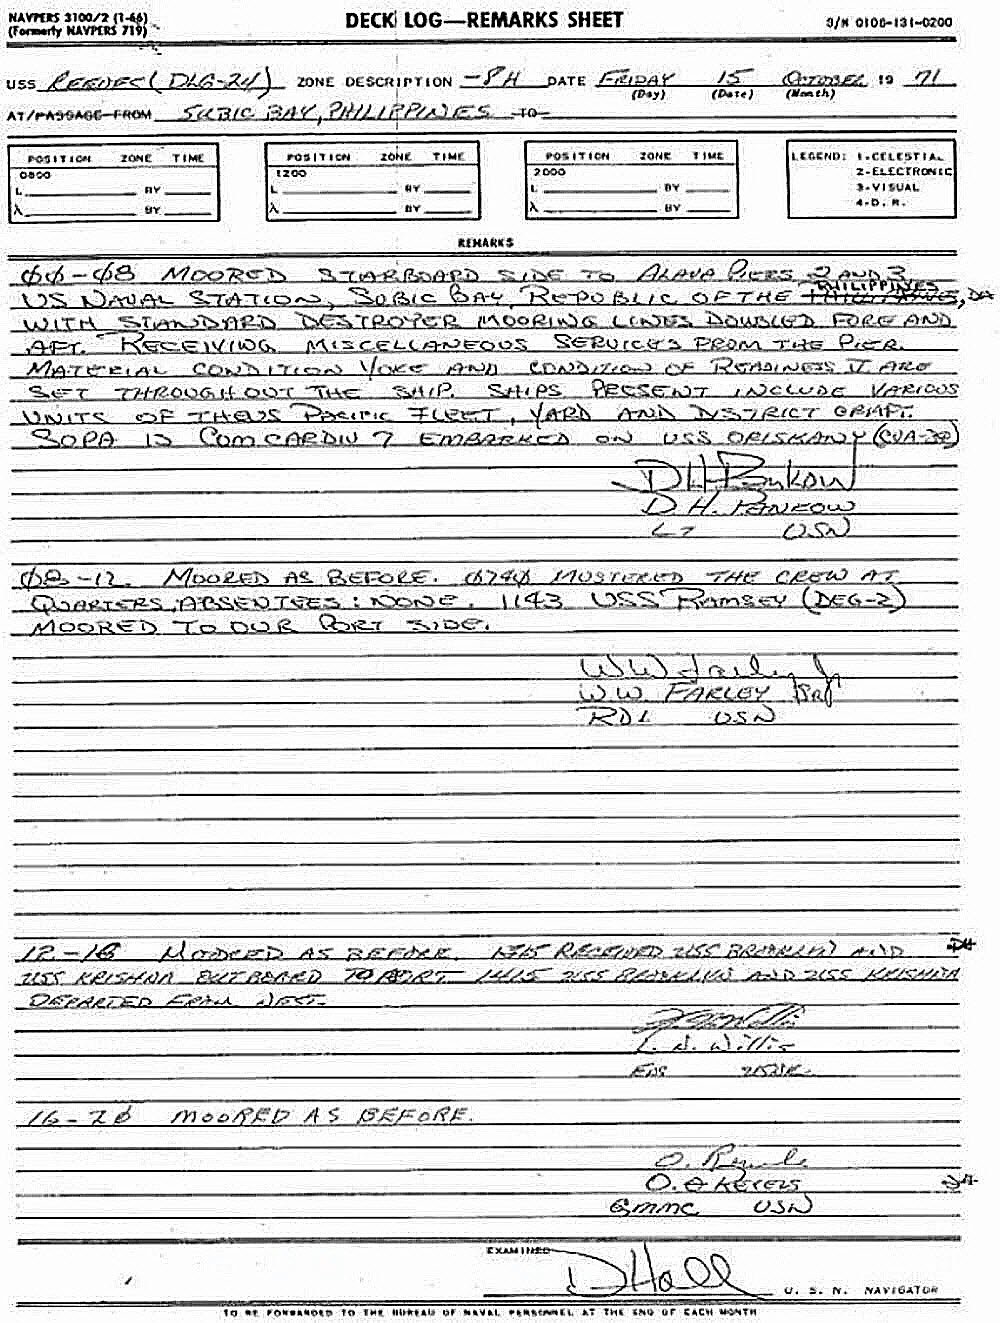 NAVPERS 3100/2 (1-66)
(Formerly NAVPERS 719)
DECK LOG—REMARKS SHEET
S/N 0106-131-0200
USS REEVES (DLG-24) ZONE DESCRIPTION -8H DATE FRIDAY 15 OCTOBER 19 71
(Day) (Date) (Month)
AT/PASSAGE FROM SUBIC BAY, PHILIPPINES TO
POSITION ZONE TIME
0800
L BY
λ BY
POSITION ZONE TIME
1200
L BY
λ BY
POSITION ZONE TIME
2000
L BY
λ BY
LEGEND: 1-CELESTIAL
2-ELECTRONIC
3-VISUAL
4-D. R.
REMARKS
00-08 MOORED STARBOARD SIDE TO ALAVA PIERS 2 AND 3
US NAVAL STATION, SUBIC BAY, REPUBLIC OF THE PHILIPPINES,
WITH STANDARD DESTROYER MOORING LINES DOUBLED FORE AND
AFT. RECEIVING MISCELLANEOUS SERVICES FROM THE PIER.
MATERIAL CONDITION YOKE AND CONDITION OF READINESS V ARE
SET THROUGHOUT THE SHIP. SHIPS PRESENT INCLUDE VARIOUS
UNITS OF THE US PACIFIC FLEET, YARD AND DISTRICT CRAFT.
SOPA IS COMCARDIV 7 EMBARKED ON USS ORISKANY (CVA-34)
D. H.
LT USN
08-12 MOORED AS BEFORE. 0740 MUSTERED THE CREW AT
QUARTERS, ABSENTEES: NONE. 1143 USS RAMSEY (DEG-2)
MOORED TO OUR PORT SIDE.
WW Farley Jr
W.W. FARLEY JR
RD1 USN
12-16 MOORED AS BEFORE. 1315 RECEIVED USS BROOKLYN AND
USS KRISHNA OUTBOARD TO PORT. 1415 USS BROOKLYN AND USS KRISHNA
DEPARTED FROM NEST.
L. J. Willis
ENS USNR
16-20 MOORED AS BEFORE.
O.
GMMC USN
EXAMINED
DHall
U. S. N. NAVIGATOR
TO BE FORWARDED TO THE BUREAU OF NAVAL PERSONNEL AT THE END OF EACH MONTH